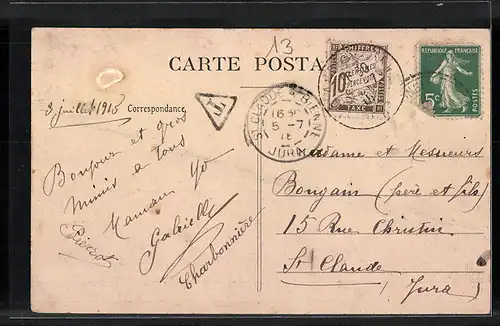 13
CARTE POSTA
RÉPUBLIQUE FRANÇAISE
5c POSTES
CHIFFRE
10 CENTIMES
A PERCEVOIR
TAXE
3 juillet 1915
Correspondance
T
ST CLAUDE-S-BIENNE
16
5 -7
JURA
Bonjour et gros
mimis à tous
Maman Yo
Gabrielle
Pierrot
Charbonnière
Madame et Messieurs
Bougain (père et fils)
15 Rue Christin
St Claude
(Jura)